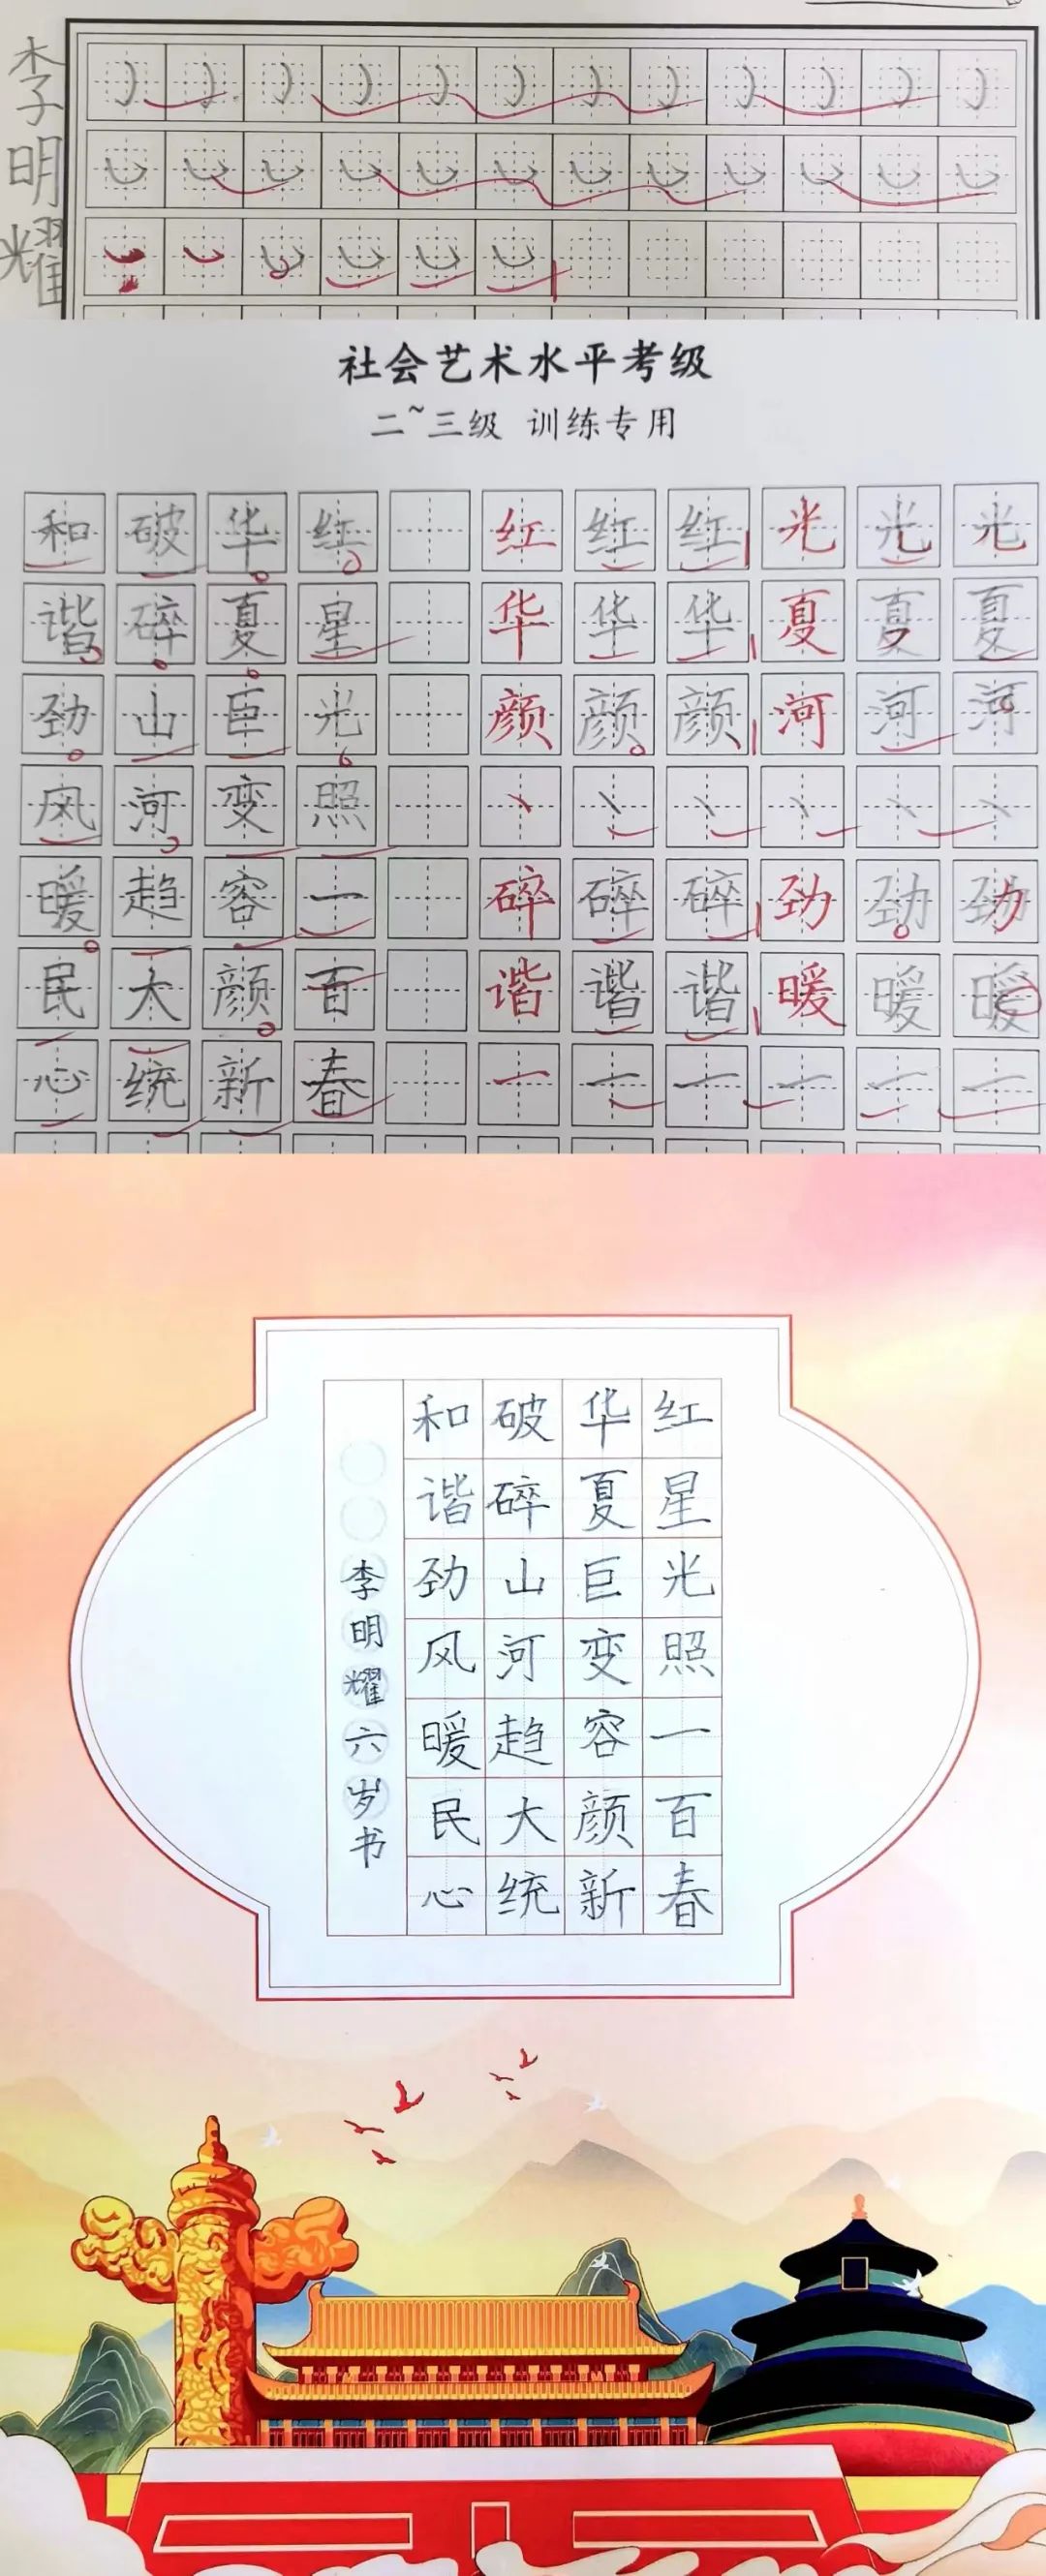 李明耀
社会艺术水平考级
二~三级 训练专用
红星光照一百春
华夏巨变容颜新
破碎山河趋大统
和谐劲风暖民心
红红红光光光
华华华夏夏夏
颜颜颜河河河
碎碎碎劲劲劲
谐谐谐暖暖暖
红星光照一百春
华夏巨变容颜新
破碎山河趋大统
和谐劲风暖民心
李明耀六岁书